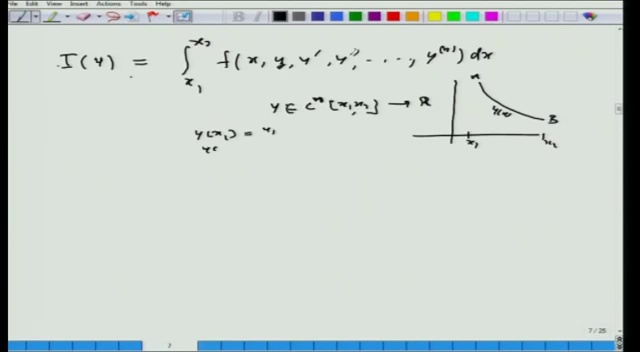 File Edit View Insert Actions Tools Help
I(y) = ∫_{x_1}^{x_2} f(x, y, y', y'', ..., y^{(n)}) dx
y ∈ C^n [x_1, x_2] → R
A
y(x) B
y(x_1) = y_1
x_1 x_2
7 / 25
7